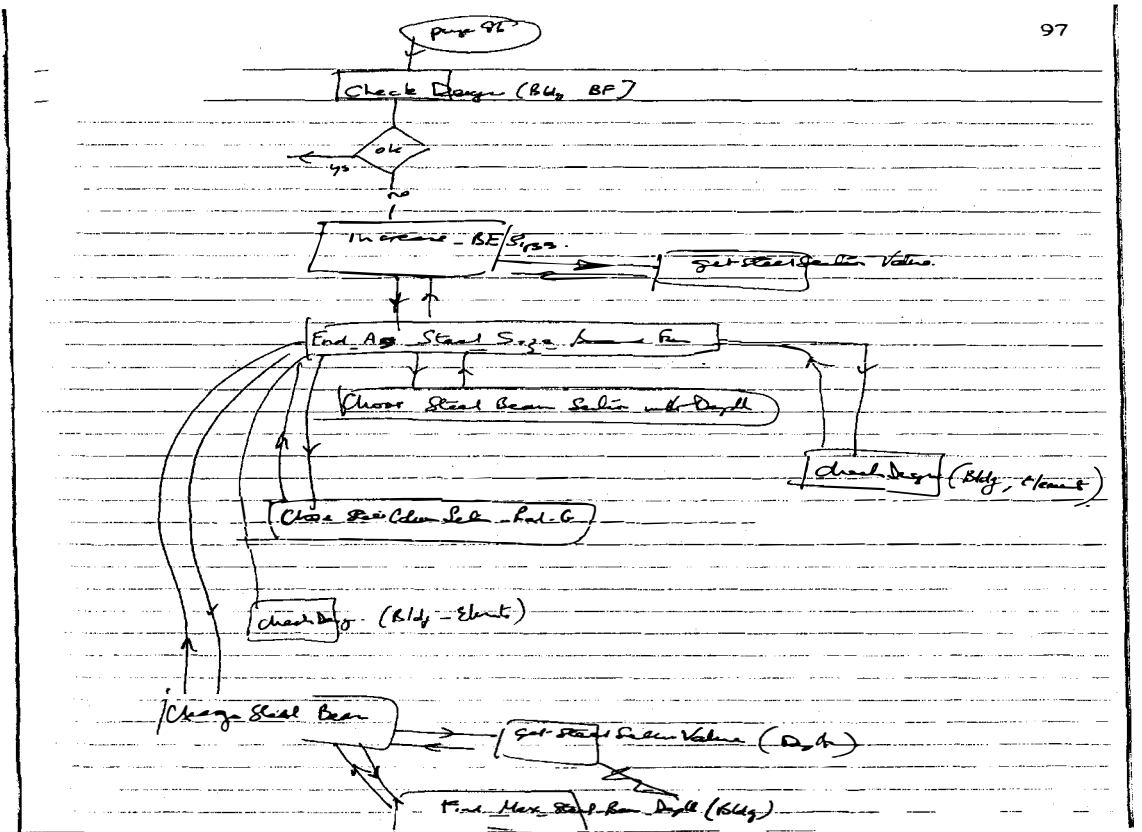 97
page
Check Design (Bldg BF)
ok
ys
no
Increase_BE/Sizes.
get steel Section Value.
Steel
Choose Steel Beam Section Depth
check Design (Bldg, element)
Choose Steel Column
check Desg. (Bldg - Elements)
Change Steel Beam
get steel Section Value (Depth)
Find_Max_Steel-Beam_Depth (Bldg)